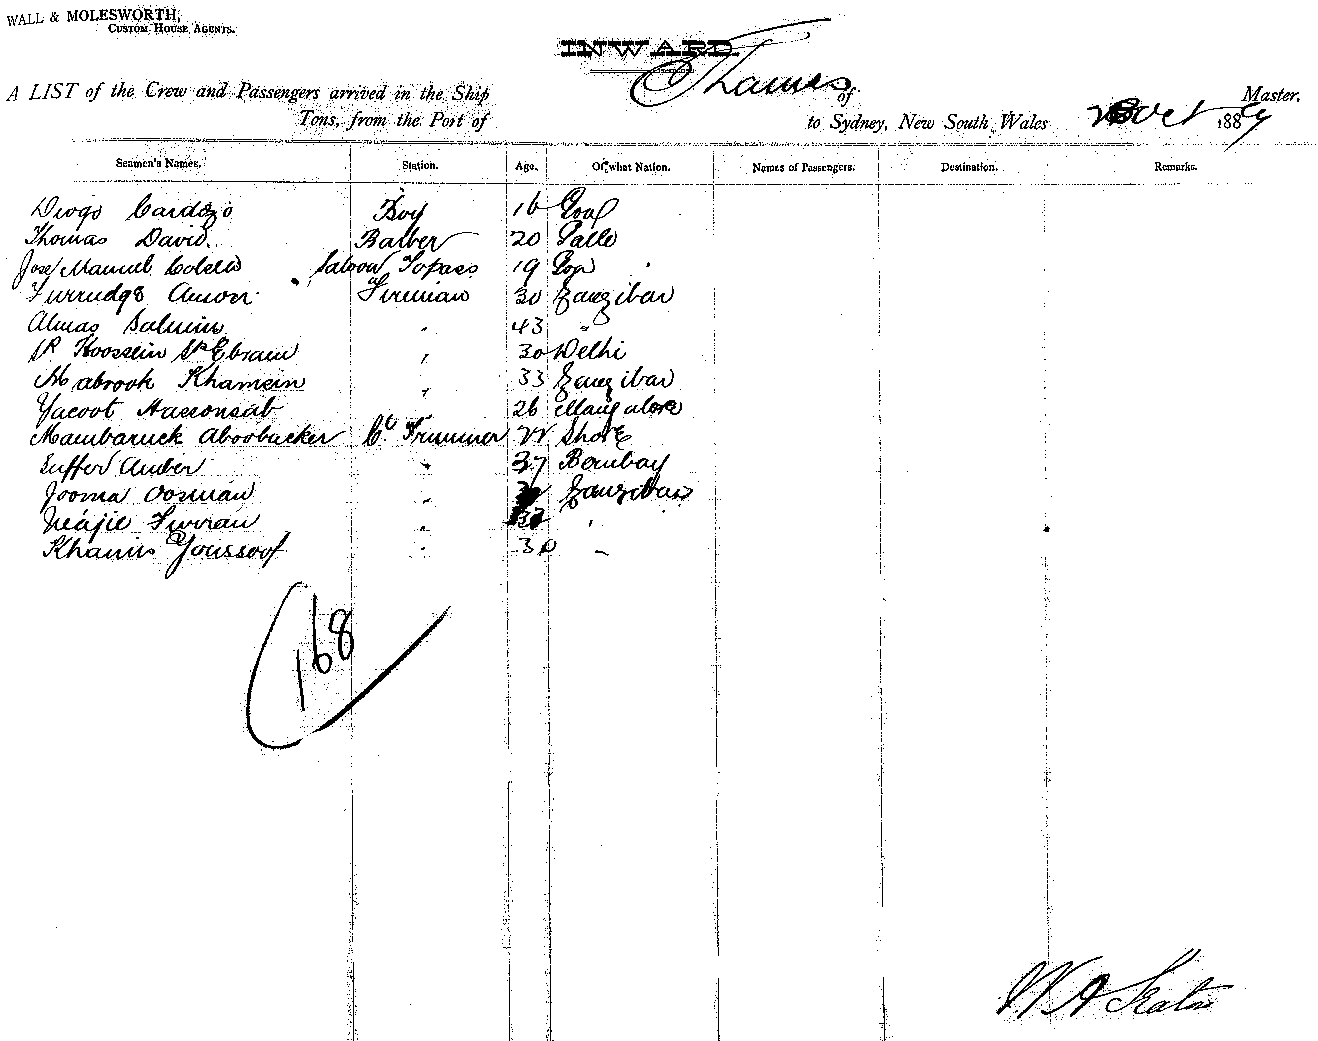 WALL & MOLESWORTH,
CUSTOM HOUSE AGENTS.
INWARD.
A LIST of the Crew and Passengers arrived in the Ship Thames of Master,
Tons, from the Port of to Sydney, New South Wales Oct 1889
Seamen's Names. Station. Age. Of what Nation. Names of Passengers. Destination. Remarks.
Diogo Cardozo Boy 16 Goa
Thomas David. Barber 20 Galle
Jose Manuel Saloon Topass 19 Goa
Fireman 30 Zanzibar
Almas Salmin " 43 "
Hoossein Ebram " 30 Delhi
Mabrook Khamsin " 33 Zanzibar
Yacoot Hassonsab " 26 Mangalore
Mambaruck Aboobacker Co. Trimmer Shore
Suffer Amber " 37 Bombay
Jooma Oosman " Zanzibar
Furran " "
Khamis Youssoof " 30 "
168
W A Seaton